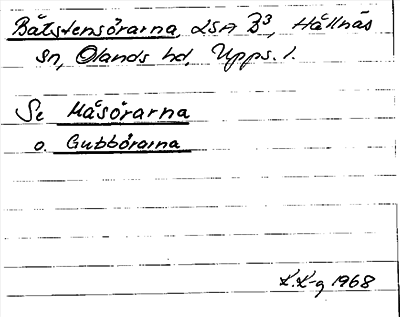 Båtstensörarna, LSA B³, Hållnäs
sn, Olands hd, Upps. l.
Se Måsörarna
o. Gubbörarna
K.K-g 1968